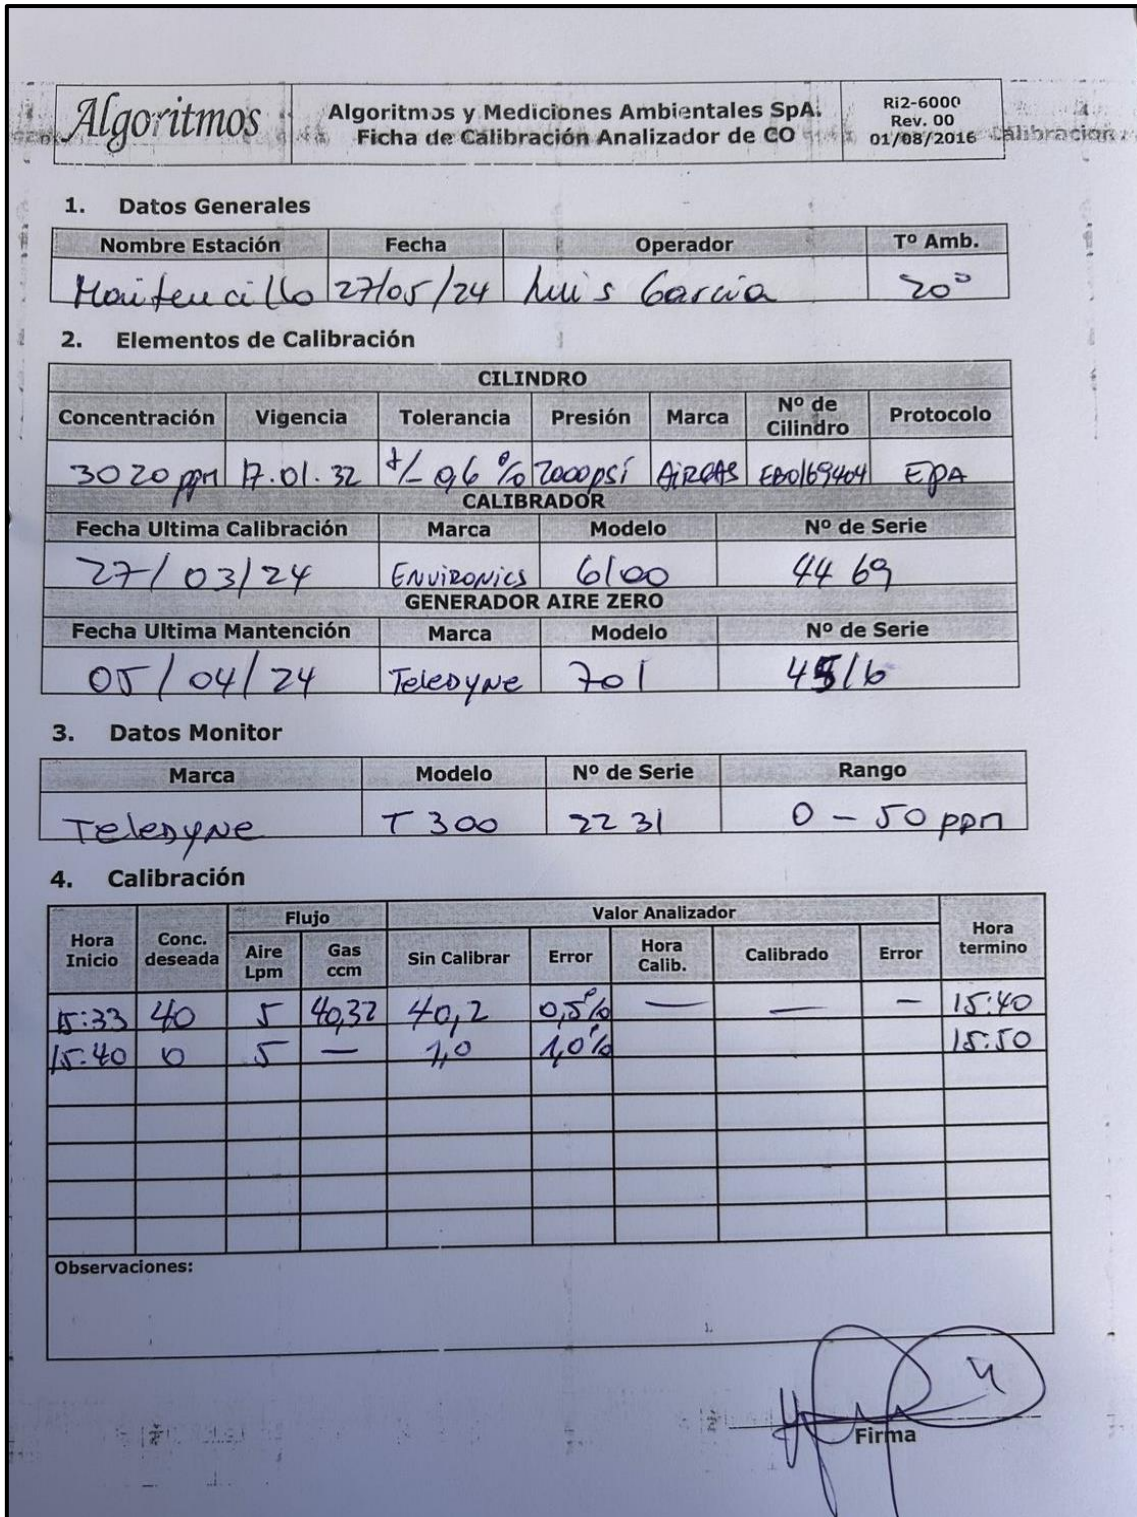 Algoritmos
Algoritmos y Mediciones Ambientales SpA.
Ficha de Calibración Analizador de CO
Ri2-6000
Rev. 00
01/08/2016
Calibracion
1. Datos Generales
Nombre Estación Fecha Operador Tº Amb.
Maitencillo 27/05/24 Luis Garcia 20°
2. Elementos de Calibración
CILINDRO
Concentración Vigencia Tolerancia Presión Marca Nº de Cilindro Protocolo
3020 ppm 17.01.32 +/- 0,6 % 2000psi AIRGAS EB0169404 EPA
CALIBRADOR
Fecha Ultima Calibración Marca Modelo Nº de Serie
27/03/24 ENVIRONICS 6100 4469
GENERADOR AIRE ZERO
Fecha Ultima Mantención Marca Modelo Nº de Serie
05/04/24 TELEDYNE 701 4516
3. Datos Monitor
Marca Modelo Nº de Serie Rango
TELEDYNE T300 2231 0 - 50 ppm
4. Calibración
Flujo Valor Analizador
Hora Inicio Conc. deseada Aire Lpm Gas ccm Sin Calibrar Error Hora Calib. Calibrado Error Hora termino
15:33 40 5 40,32 40,2 0,5% — — — 15:40
15:40 0 5 — 1,0 1,0% 15:50
Observaciones:
Firma